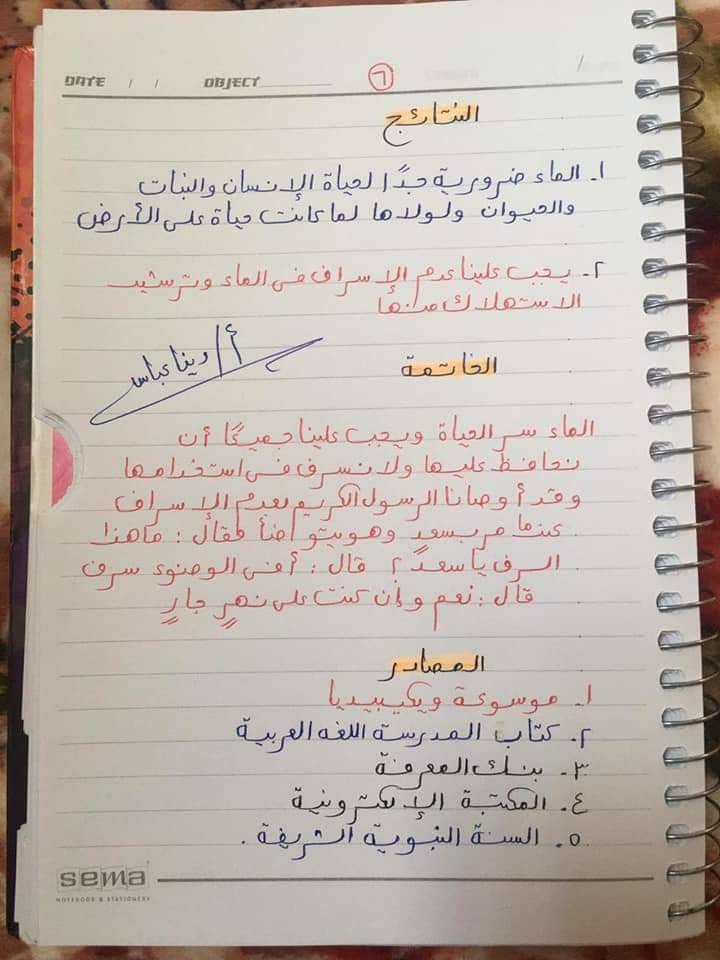 DATE / / OBJECT
٦
النتائج
١- الماء ضرورية جدًا لحياة الإنسان والنبات
والحيوان ولولاها لما كانت حياة على الأرض
٢- يجب علينا عدم الإسراف فى الماء وترشيد
الاستهلاك منها
أ/ دينا عباس
الخاتمة
الماء سر الحياة ويجب علينا جميعًا أن
نحافظ عليها ولا نسرف فى استخدامها
وقد أوصانا الرسول الكريم بعدم الإسراف
عندما مر بسعدٍ وهو يتوضأ فقال : ما هذا
السرف يا سعد ؟ قال : أفى الوضوء سرف
قال : نعم وإن كنت على نهرٍ جارٍ
المصادر
١- موسوعة ويكيبيديا
٢- كتاب المدرسة اللغه العربية
٣- بنك المعرفة
٤- المكتبة الإلكترونية
٥- السنة النبوية الشريفة .
sema
NOTEBOOK & STATIONERY